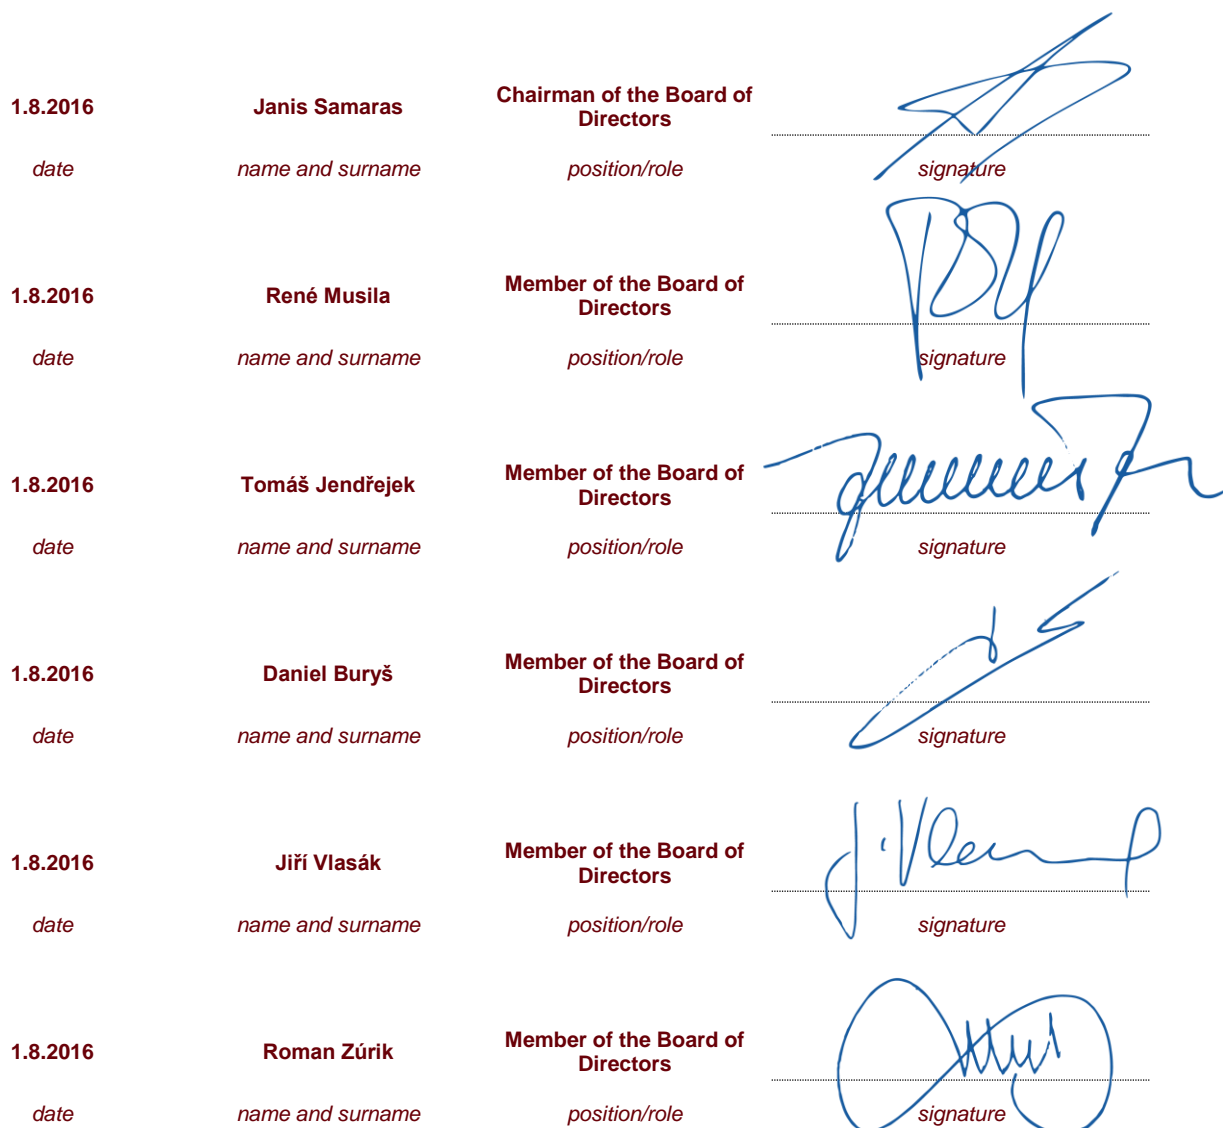 1.8.2016 Janis Samaras Chairman of the Board of Directors
date name and surname position/role signature
1.8.2016 René Musila Member of the Board of Directors
date name and surname position/role signature
1.8.2016 Tomáš Jendřejek Member of the Board of Directors
date name and surname position/role signature
1.8.2016 Daniel Buryš Member of the Board of Directors
date name and surname position/role signature
1.8.2016 Jiří Vlasák Member of the Board of Directors
date name and surname position/role signature
1.8.2016 Roman Zúrik Member of the Board of Directors
date name and surname position/role signature